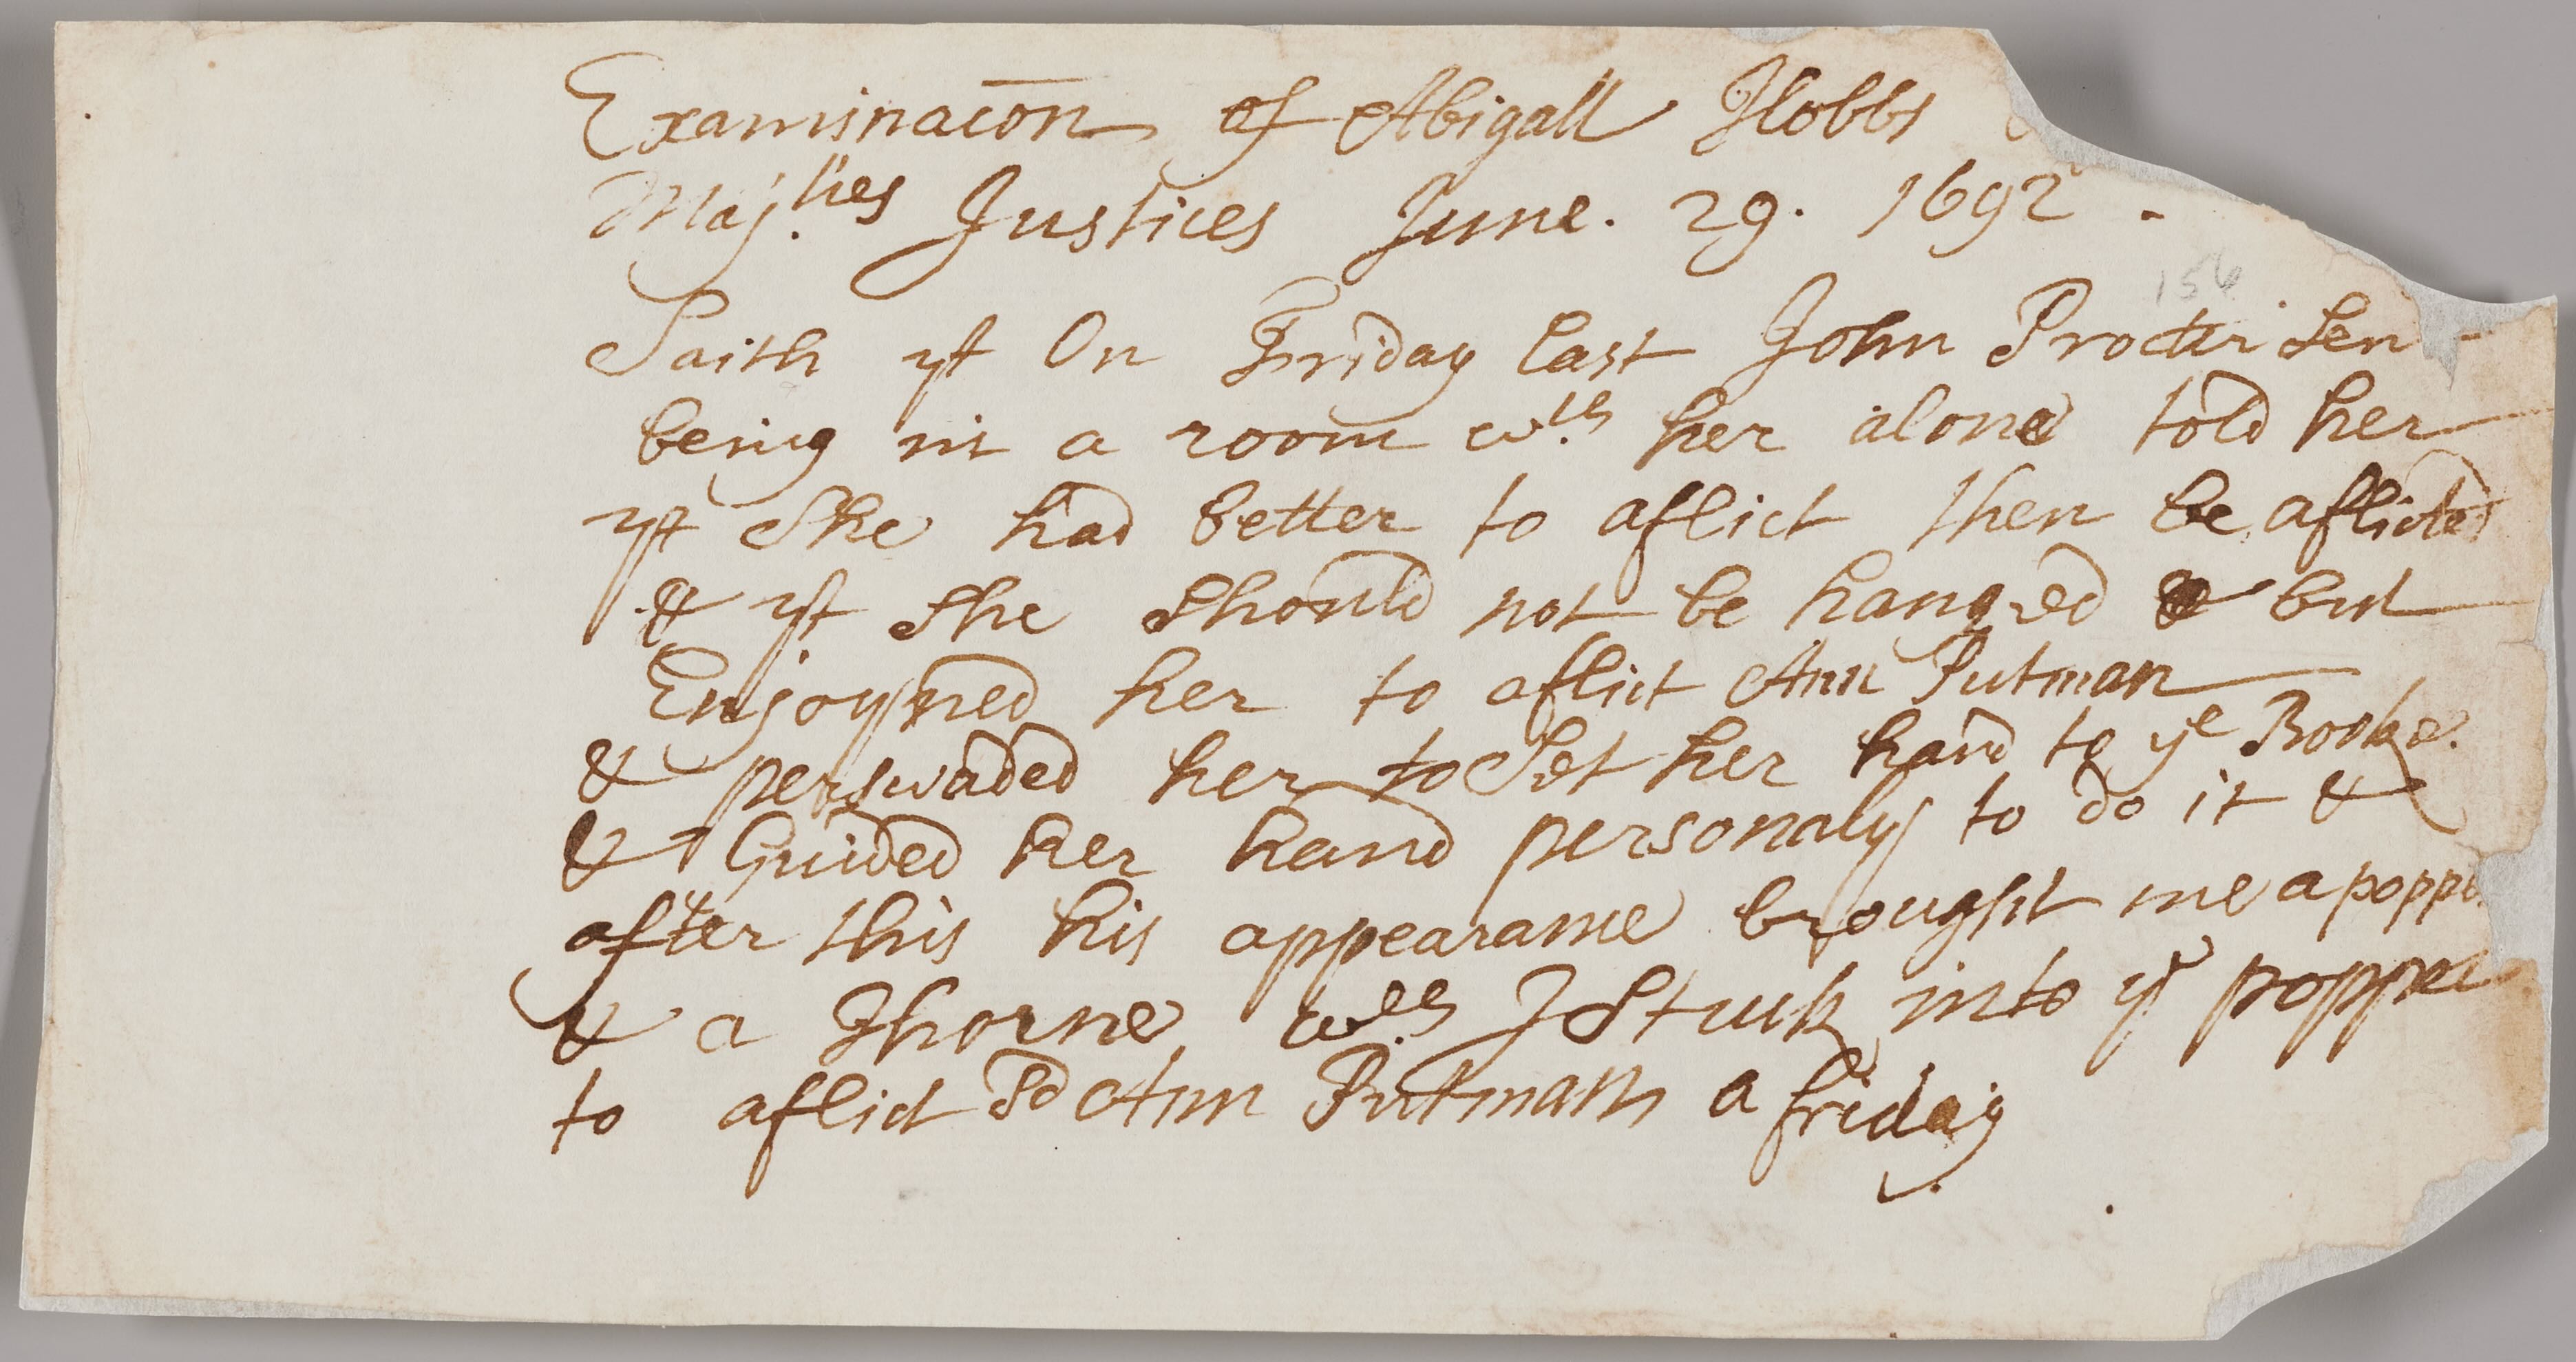 Examinacon of Abigall Hobbs
Maj.ties Justices June. 29. 1692.
156
Saith yt On Friday last John Procter Sen
being in a room wth her alone told her
yt She had better to aflict then be aflicted
& yt She Should not be hanged but
Enjoyned her to aflict Ann Putman
& perswaded her to Set her hand to ye Booke.
& Guided her hand personaly to do it &
after this his appearance brought me a poppe
& a Thorne wch I Stuck into ye poppet
to aflict Sd Ann Putmam a friday